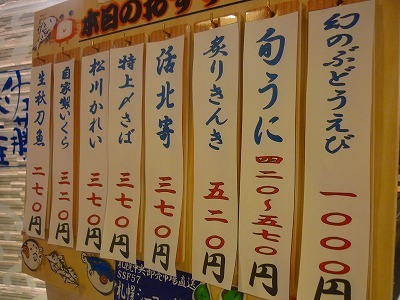 本日のおすす
幻のぶどうえび 一〇〇〇円
旬うに 四二〇～五七〇円
炙りきんき 五二〇円
活北寄 三七〇円
特上〆さば 三七〇円
松川かれい 三七〇円
自家製いくら 三二〇円
生秋刀魚 二七〇円
SSF57